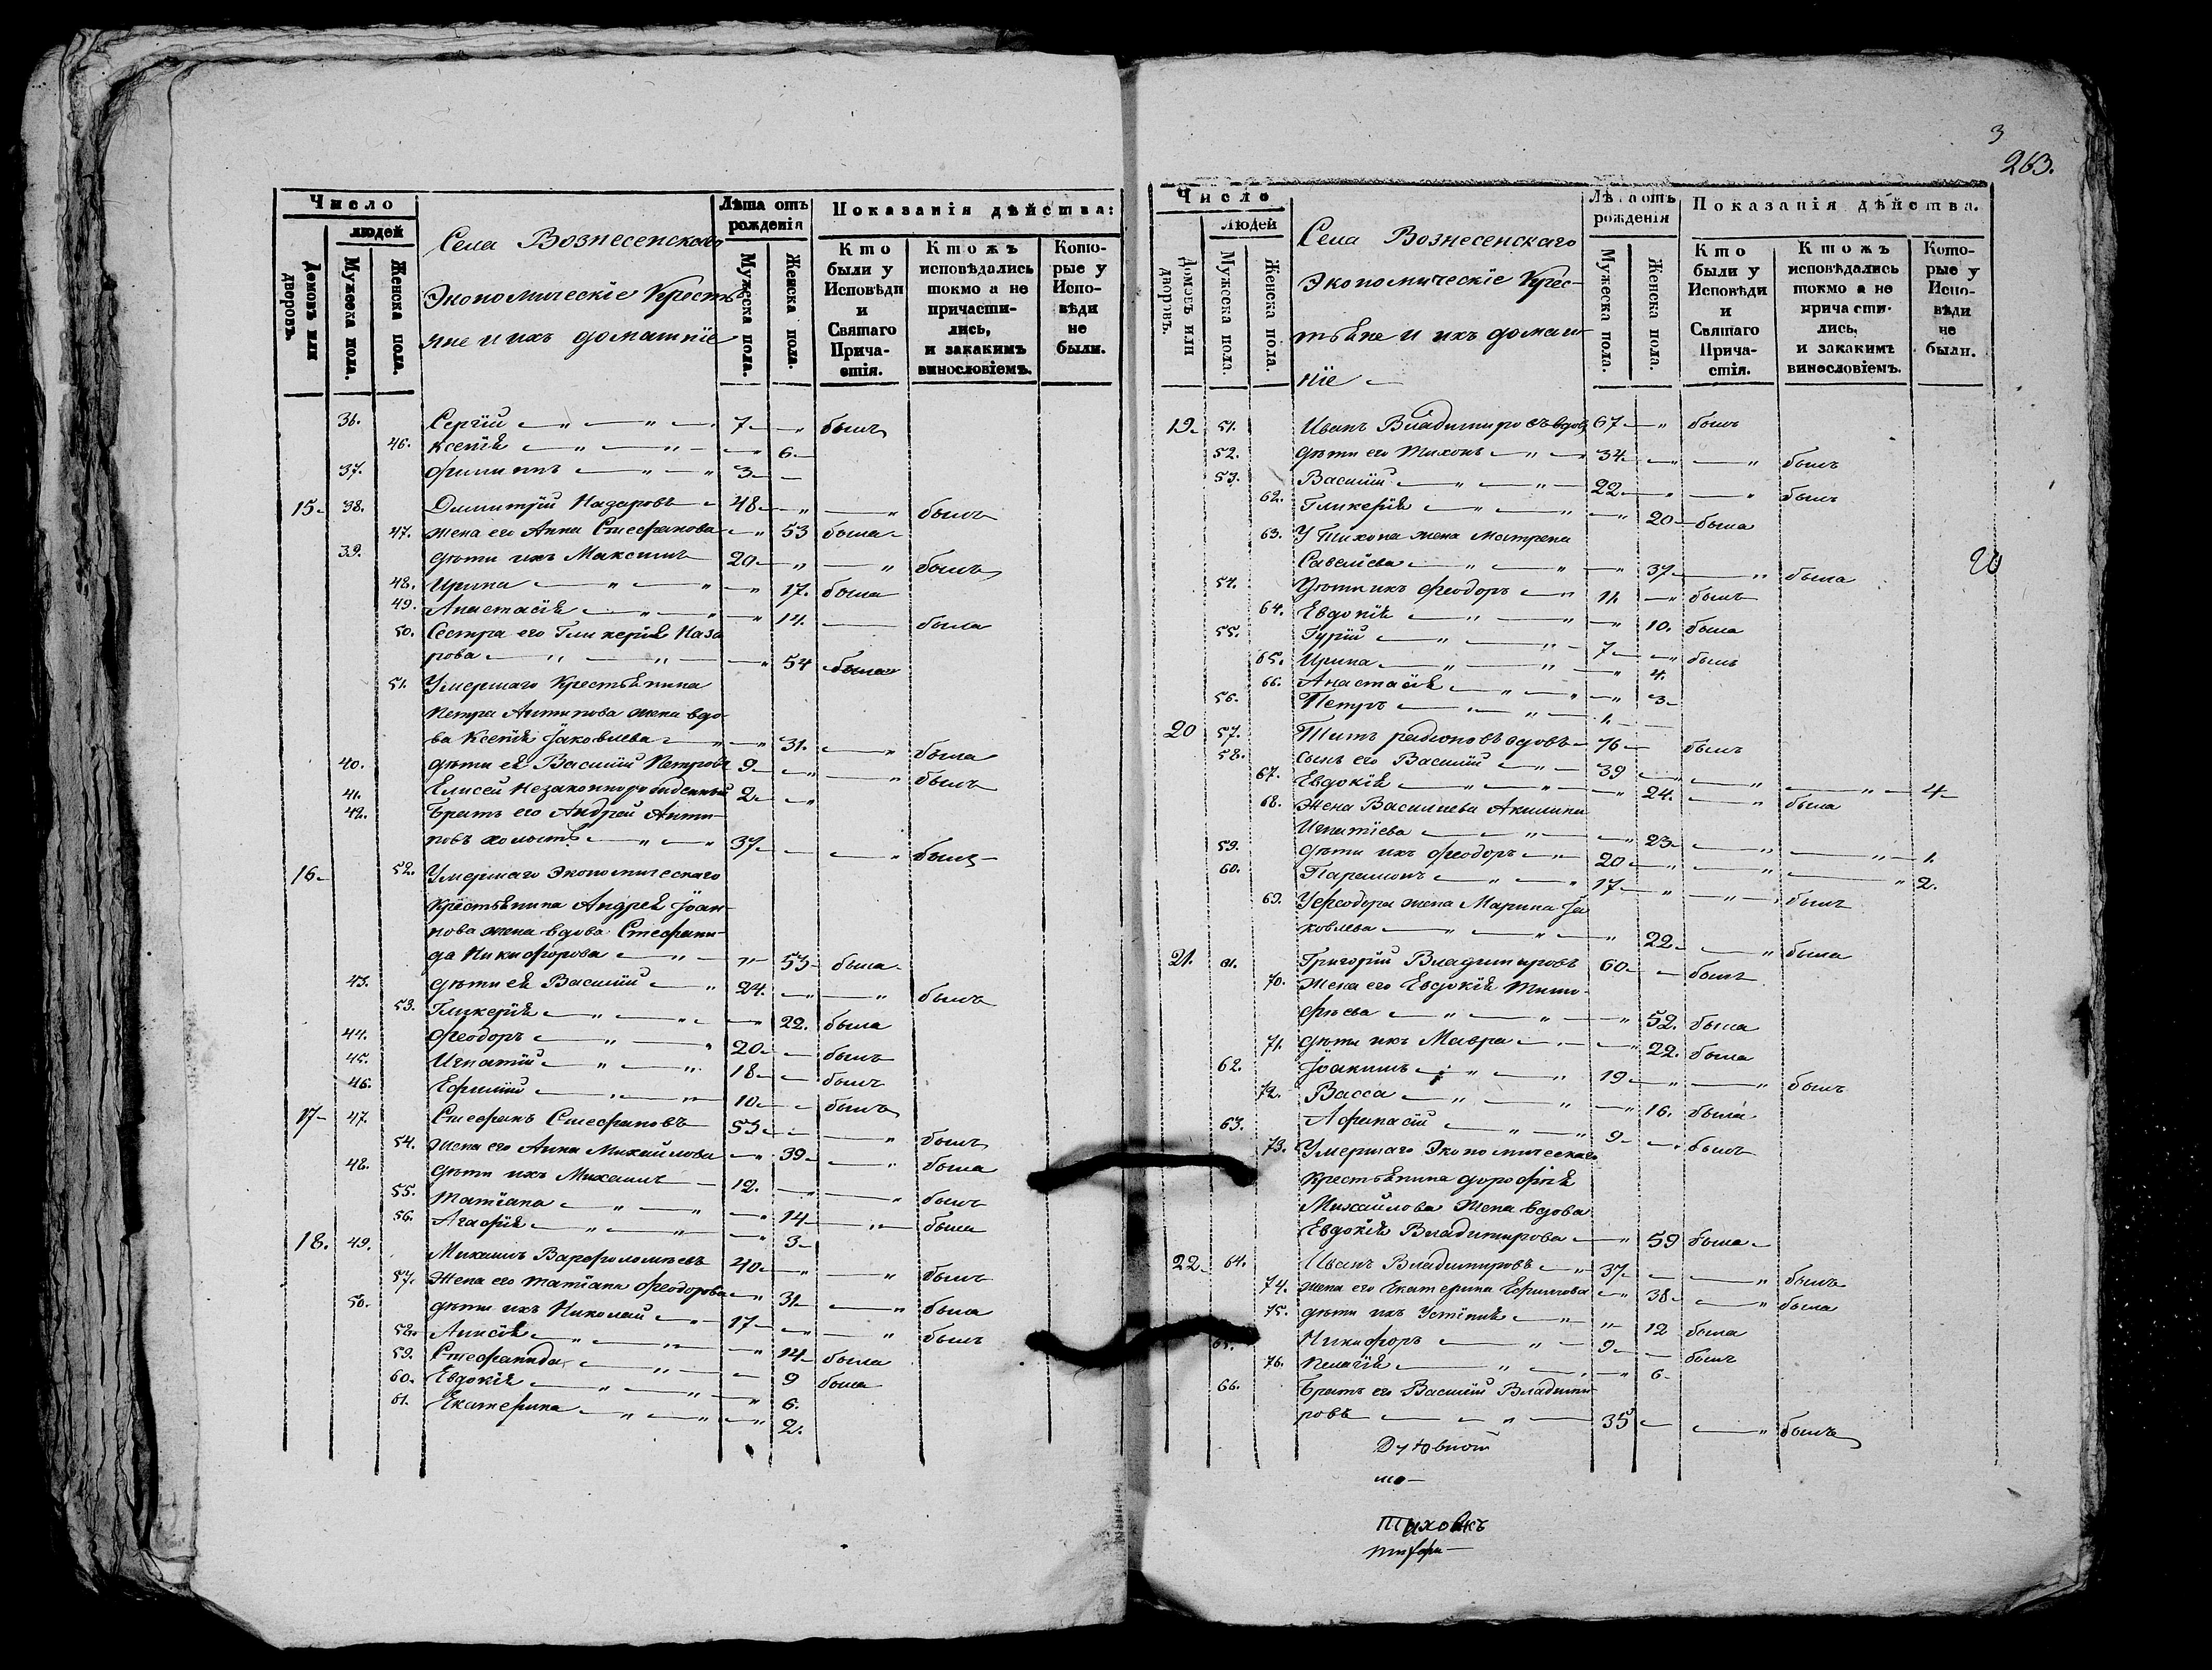 Число
людей
Домовъ или дворовъ.
Мужеска пола.
Женска пола.
Села Вознесенскаго
Экономическіе Кресть
яне и ихъ домашніе
Лѣта отъ рожденія
Мужеска пола.
Женска пола.
Показанія дѣйства:
Кто были у Исповѣди и Святаго Причастія.
Ктожъ исповѣдались токмо а не причастились, и закакимъ винословіемъ.
Которые у Исповѣди не были.
36. Сергій — „ — „ — 7 — „ былъ
46. Ксенія — „ — „ — „ 6.
37. Филиппъ — „ — „ 3 —
15. 38. Димитрій Назаровъ — 48 — „ — „ былъ
47. жена его Анна Стефанова — „ 53 была
39. дѣти ихъ Максимъ 20 — „ — „ былъ
48. Ирина — „ — „ — „ 17. была
49. Анастасія — „ — „ — „ 14. — была
50. Сестра его Гликерія Наза
рова — „ — „ — „ 54 была
51. Умершаго Крестьянина
Петра Антипова жена вдо-
ва Ксенія Іаковлева — „ — „ 31. — „ была
40. дѣти ея Василій Петровъ 9 — „ — „ былъ
41. Елисей Незаконнорожденный 2 — „
42. Братъ его Андрей Анти-
повъ холостъ — „ — „ 37 — — „ былъ
16 52. Умершаго Экономическаго
Крестьянина Андрея Іоан-
нова жена вдова Стефани-
да Никифорова — „ — „ 53 была
43. дѣти ея Василій — „ 24. — „ — „ былъ
53. Гликерія — „ — „ — „ 22. была
44. Феодоръ — „ — „ 20 — былъ
45. Игнатій — „ — „ 18 — былъ
46. Ефимій — „ — „ 10 — былъ
17 47. Стефанъ Стефановъ 53 — — „ былъ
54. Жена его Анна Михайлова — „ 39 — „ была
48. дѣти ихъ Михаилъ — 12. — „ — „ былъ
55. Татіана — „ — „ — „ 14 — „ — была
56. Агафія — „ — „ — „ 3
18. 49. Михаилъ Варфоломѣевъ 40 — „ — „ былъ
57. Жена его Татіана Феодорова — „ 31 — „ была
50. дѣти ихъ Николай — „ 17 — „ — „ былъ
58. Анисія — „ — „ — „ 14 была
59. Стефанида — „ — 9 была
60. Евдокія — „ — „ — „ 6.
61. Екатерина — „ — „ — „ 2.
3
263.
Число
Людей
Домовъ или дворовъ.
Мужеска пола.
Женска пола.
Села Вознесенскаго
Экономическіе Крес-
тьяне и ихъ домаш-
ніе —
Лѣта отъ рожденія
Мужеска пола.
Женска пола.
Показанія дѣйства.
Кто были у Исповѣди и Святаго Причастія.
Ктожъ исповѣдались токмо а не причастились, и закакимъ винословіемъ.
Которые у Исповѣди не были.
19 51. Иванъ Владимировъ вдовъ 67 — „ былъ
52. дѣти его Тихонъ — „ 34. — „ — „ былъ
53. Василій — „ — „ 22 — „ — „ былъ
62. Гликерія — „ — „ — „ 20 — была
63. У Тихона жена Матрена
Савельева — „ — „ — „ 37 — „ была
20
54. дѣти ихъ Феодоръ — „ 11. — „ былъ
64. Евдокія — „ — „ — „ 10. была
55. Гурій — „ — „ 7 — „ былъ
65. Ирина — „ — „ — „ 4.
66. Анастасія — „ — „ — „ 3
56. Петръ — „ — „ 1. —
20 57. Титъ радионовъ вдовъ — 76 — былъ
58. Сынъ его Василій — „ 39 — „ — „ — „ — 4
67. Евдокія — „ — „ — „ 24. — „ была
68. Жена Васильева Акилина
Игнатіева — „ — „ 23 — „ — „ — 1.
59. дѣти ихъ Феодоръ — „ 20 — „ — „ — „ 2.
60. Парамонъ — „ — „ 17 — „ — „ былъ
69. У Феодора жена Марина Іа
ковлева — „ — „ — „ 22 — „ была
21. 61. Григорій Владимировъ 60 — былъ
70. Жена его Евдокія Тимо-
фѣева — „ — „ — „ 52. была
71. дѣти ихъ Мавра — „ — „ 22. была
62. Іоакимъ — „ — „ 19 — „ — „ былъ
72. Васса — „ — „ — „ 16. была
63. Афанасій — „ — „ 9 — „ былъ
73. Умершаго Экономическаго
Крестьянина дорофѣя
Михайлова Жена вдова
Евдокія Владимирова — „ 59 была
22 64. Иванъ Владимировъ — „ 37 — — „ былъ
74. Жена его Екатерина Ефимова — „ 38 — „ была
75. дѣти ихъ Устинія — „ „ 12 была
65. Никифоръ — „ — 9 — былъ
76. Пелагія — „ — „ — „ 6
66. Братъ его Василій Владими
ровъ — „ — 35 — — „ былъ